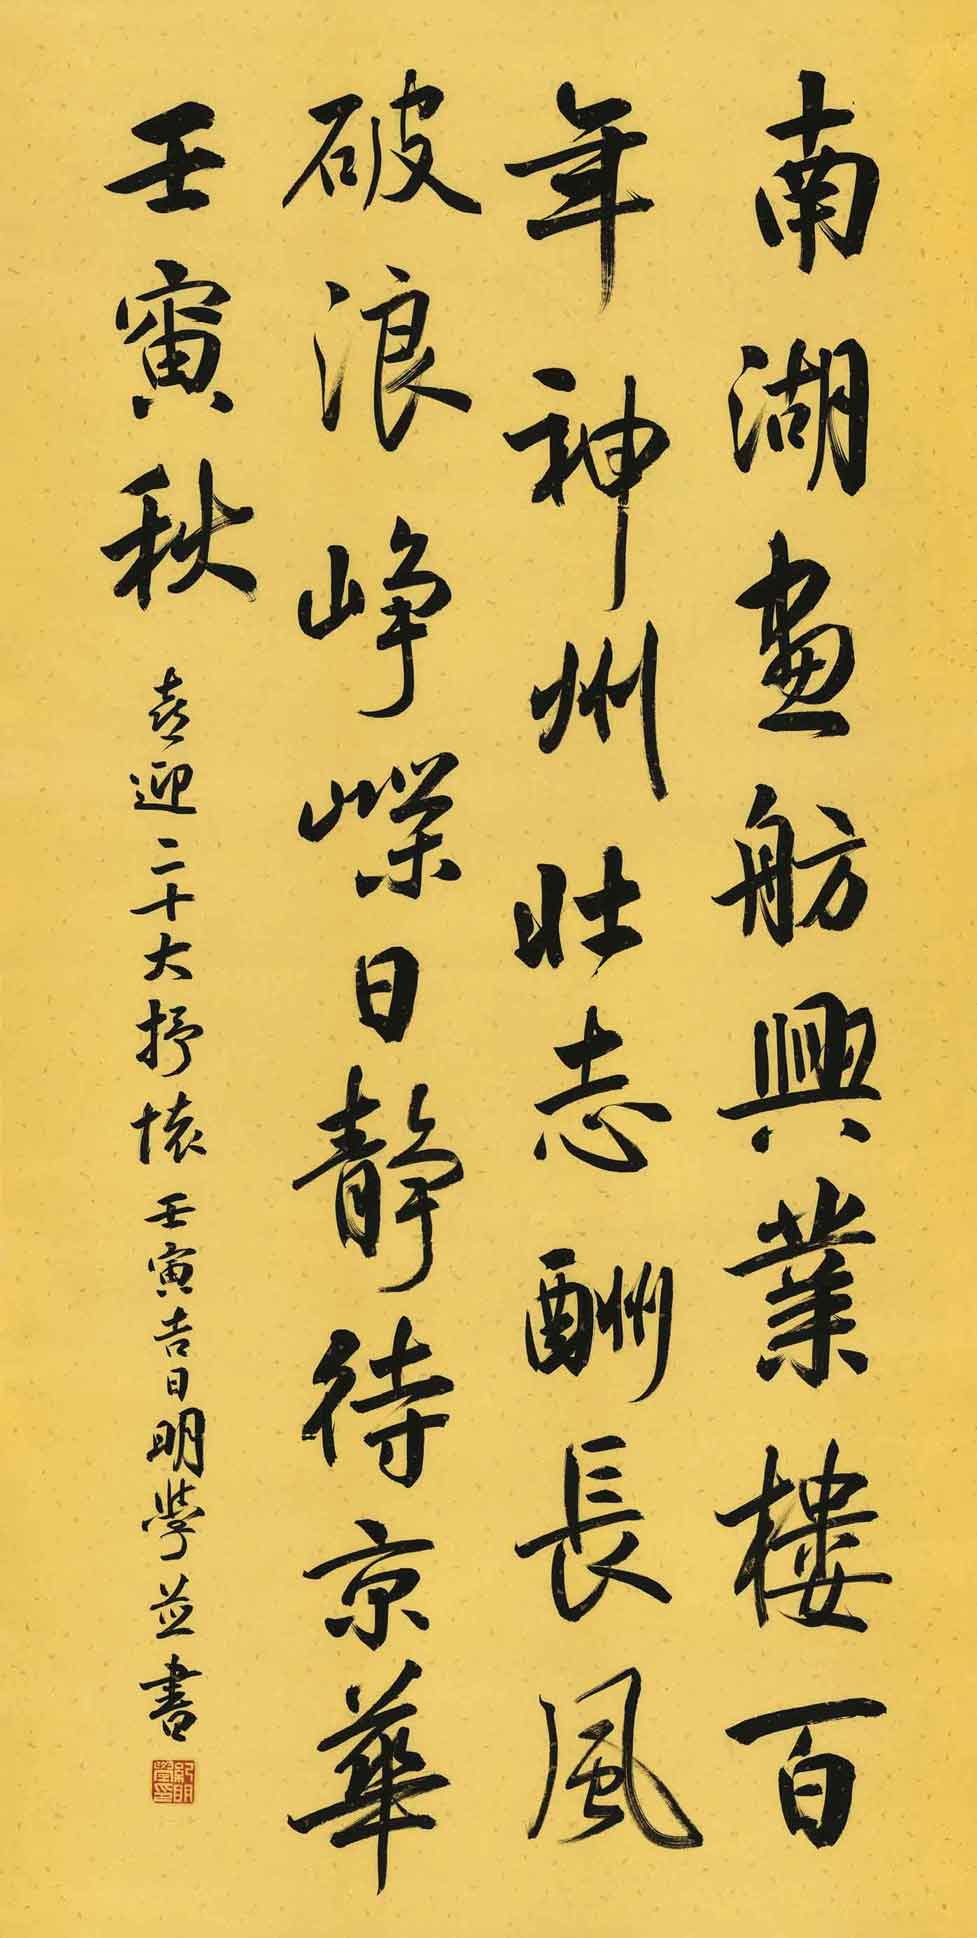 南湖畫舫興業樓百
年神州壯志酬長風
破浪崢嶸日靜待京華
壬寅秋
喜迎二十大抒懷 壬寅吉日明學並書